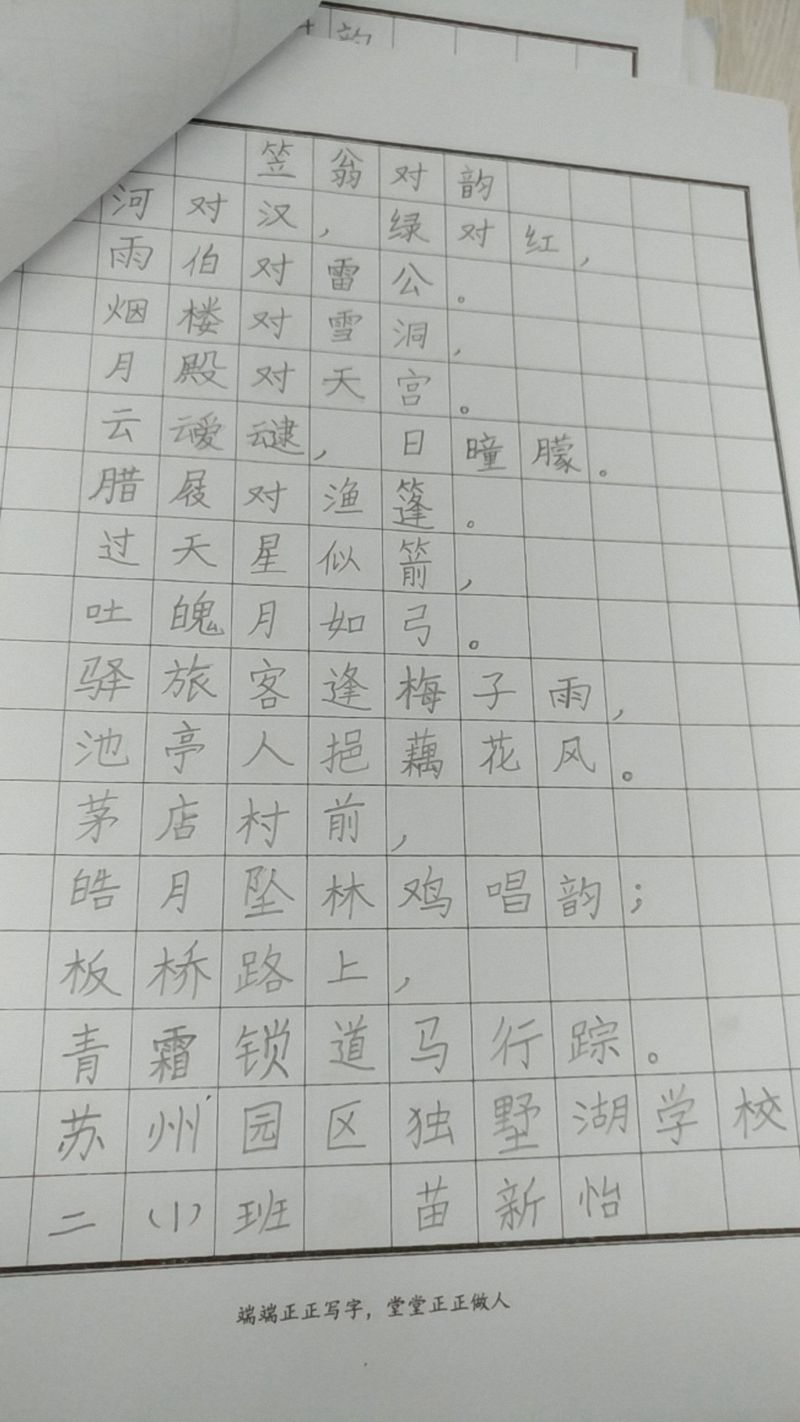 韵
笠翁对韵
河对汉，绿对红，
雨伯对雷公。
烟楼对雪洞，
月殿对天宫。
云叆叇，日曈朦。
腊屐对渔篷。
过天星似箭，
吐魄月如弓。
驿旅客逢梅子雨，
池亭人挹藕花风。
茅店村前，
皓月坠林鸡唱韵；
板桥路上，
青霜锁道马行踪。
苏州园区独墅湖学校
二（1）班 苗新怡
端端正正写字，堂堂正正做人